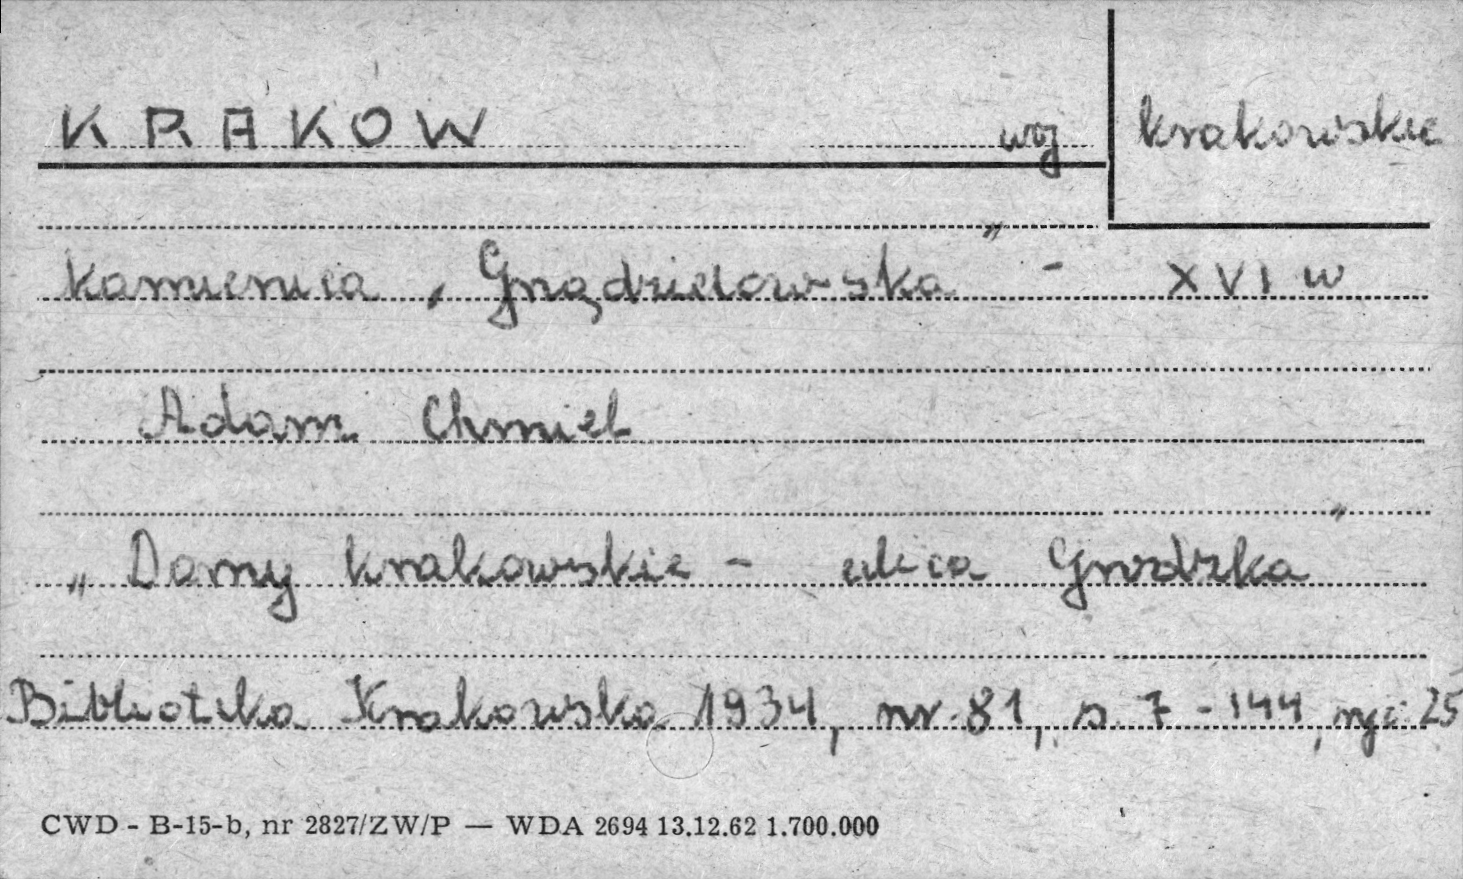 KRAKOW woj krakowskie
kamienica „Gnązdzielowska" - XVI w
Adam Chmiel
„Domy krakowskie - ulica Grodzka"
Biblioteka Krakowska 1934, nr 81, s. 7-144, ryc 25
CWD - B-15-b, nr 2827/ZW/P — WDA 2694 13.12.62 1.700.000